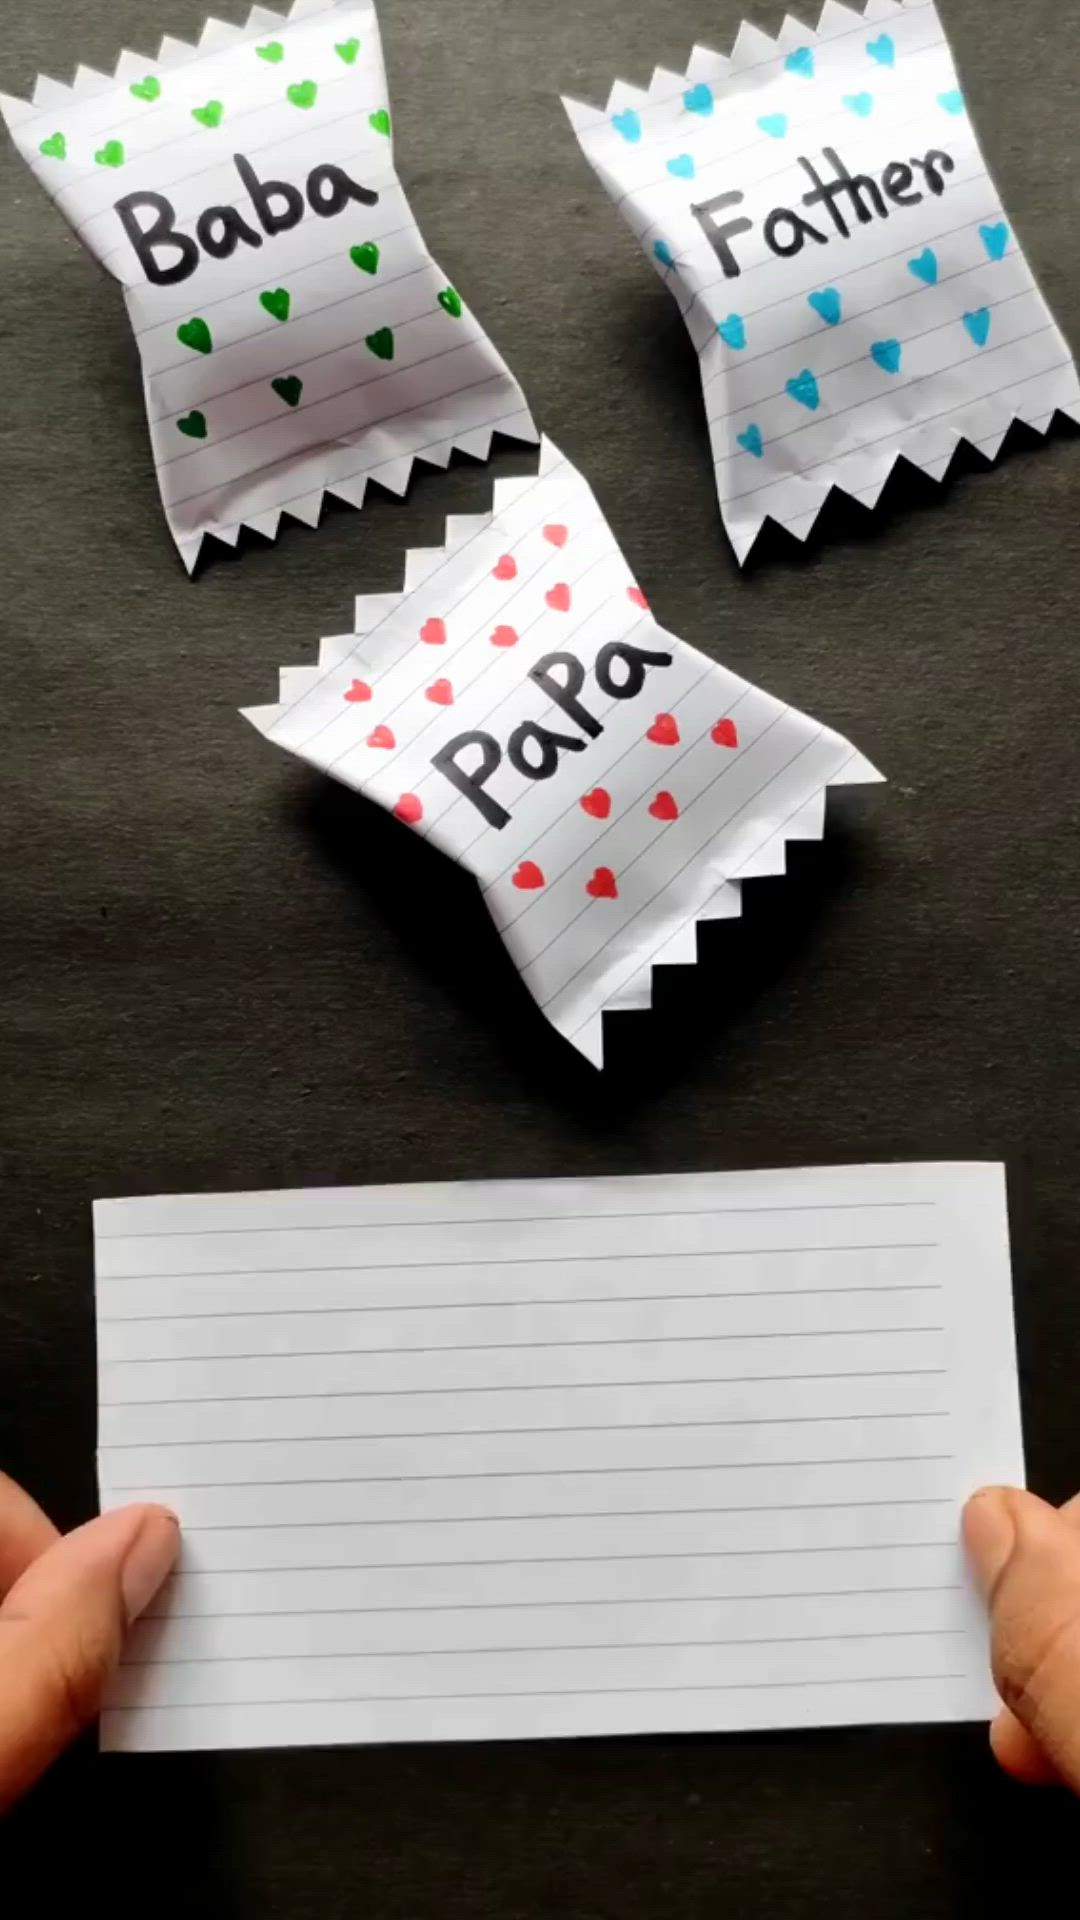 Baba
Father
PaPa